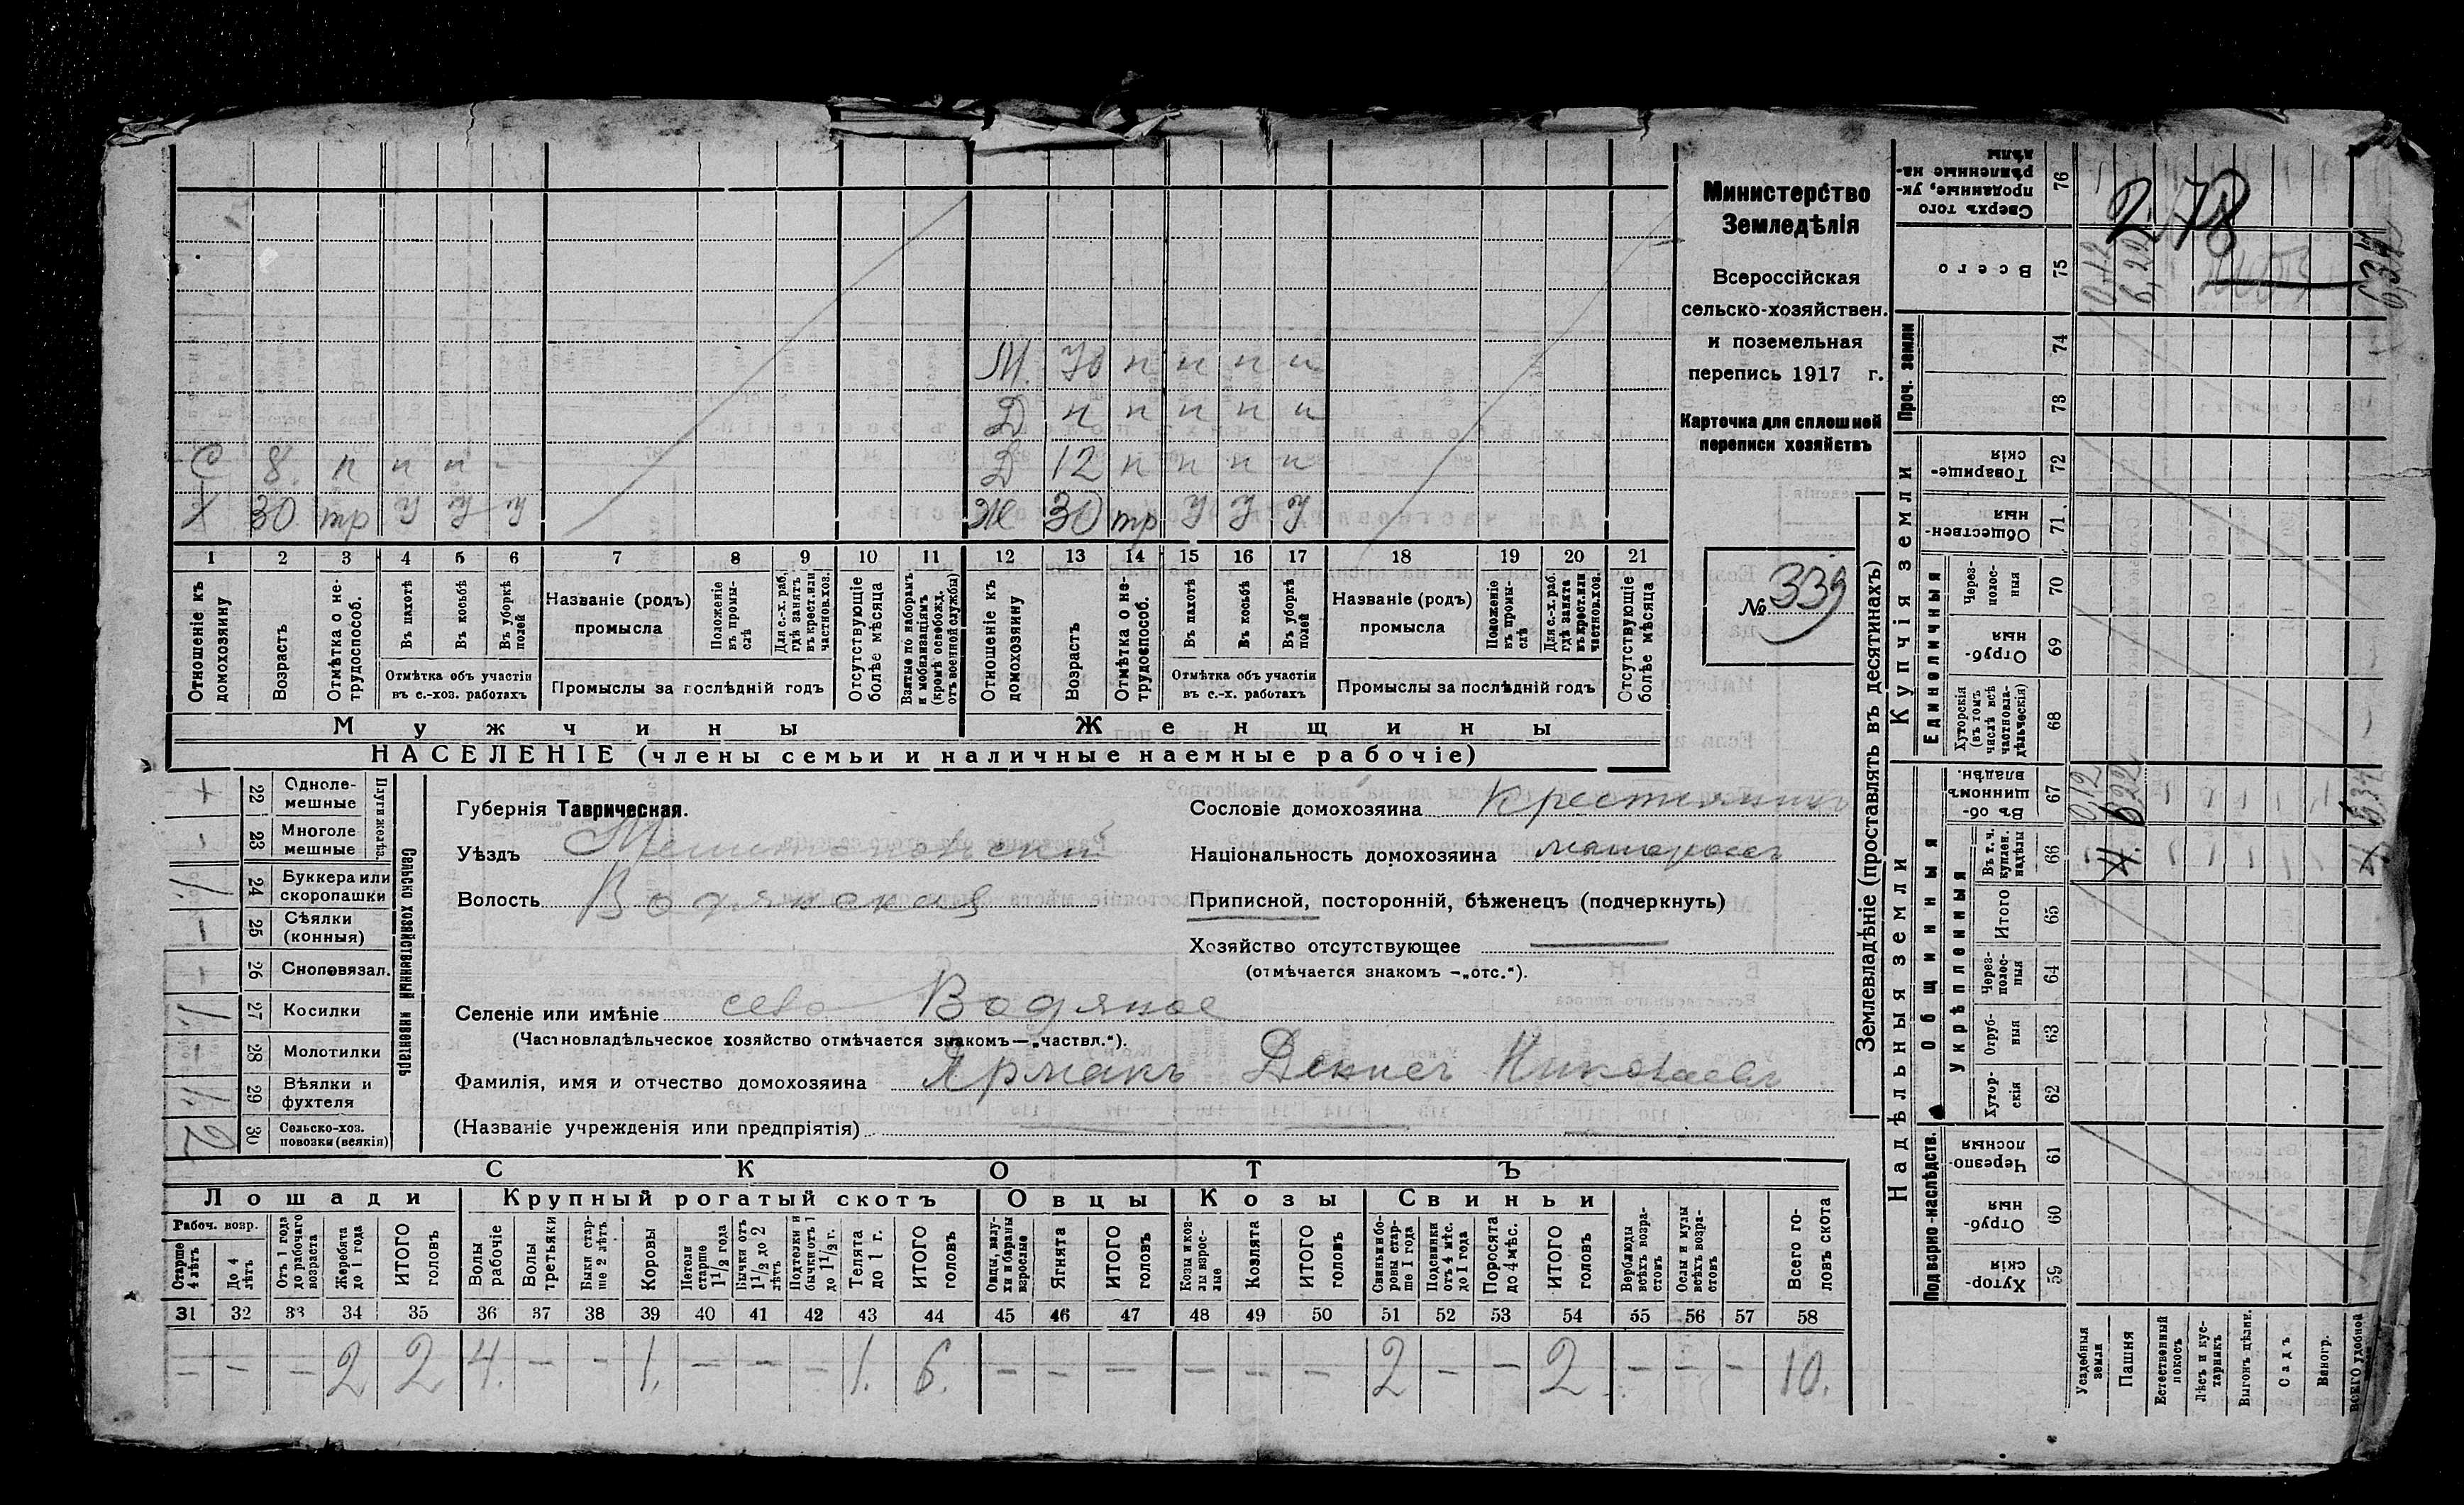 Министерство
Земледѣлія
Всероссійская
сельско-хозяйствен.
и поземельная
перепись 1917 г.
Карточка для сплошной
переписи хозяйствъ
№ 339
278
М. 70 п п п п
Д п п п п п
С 8. п п п - Д 12 п п п п
Х 30 тр у у у Ж 30 тр у у у
1 2 3 4 5 6 7 8 9 10 11 12 13 14 15 16 17 18 19 20 21
Отношеніе къ домохозяину
Возрастъ
Отмѣтка о не-трудоспособ.
Въ пахотѣ
Въ косьбѣ
Въ уборкѣ полей
Отмѣтка объ участіи въ с.-хоз. работахъ
Названіе (родъ) промысла
Положеніе въ промы-слѣ
Для с.-х. раб. гдѣ занятъ въ крест. или частнов. хоз.
Промыслы за послѣдній годъ
Отсутствующіе болѣе мѣсяца
Взятые по наборамъ и мобилизаціямъ (кромѣ освобожд. отъ военной службы)
Отношеніе къ домохозяину
Возрастъ
Отмѣтка о не-трудоспособ.
Въ пахотѣ
Въ косьбѣ
Въ уборкѣ полей
Отмѣтка объ участіи въ с.-х. работахъ
Названіе (родъ) промысла
Положеніе въ промы-слѣ
Для с.-х. раб. гдѣ занята въ крест. или частнов. хоз.
Промыслы за послѣдній годъ
Отсутствующіе болѣе мѣсяца
Мужчины Женщины
НАСЕЛЕНІЕ (члены семьи и наличные наемные рабочіе)
Сельско хозяйственный инвентарь
Плуги желѣз.
22 Одноле-мешные
23 Многоле мешные
24 Буккера или скоропашки
25 Сѣялки (конныя)
26 Сноповязал.
27 Косилки
28 Молотилки
29 Вѣялки и фухтеля
2 30 Сельско-хоз. повозки (всякія)
Губернія Таврическая.
Уѣздъ Мелитопольскій
Волость Водянская
Сословіе домохозяина Крестьянинъ
Національность домохозяина малороссъ
Приписной, посторонній, бѣженец (подчеркнуть)
Хозяйство отсутствующее
(отмѣчается знакомъ —„отс.“).
Селеніе или имѣніе село Водяное
(Частновладѣльческое хозяйство отмѣчается знакомъ—„частвл.“).
Фамилія, имя и отчество домохозяина Ярмакъ Денис Николаев
(Названіе учрежденія или предпріятія)
СКОТЪ
Лошади Крупный рогатый скотъ Овцы Козы Свиньи
Рабоч. возр.
Старше 4 лѣтъ
До 4 лѣтъ
Отъ 1 года до рабочаго возраста
Жеребята до 1 года
ИТОГО головъ
Волы рабочіе
Волы третьяки
Быки стар-ше 2 лѣтъ
Коровы
Нетели старше 1 1/2 года
Бычки отъ 1 1/2 до 2 лѣтъ
Подтелки и бычки отъ 1 до 1 1/2 г.
Телята до 1 г.
ИТОГО головъ
Овцы, валу-хи и бараны взрослые
Ягнята
ИТОГО головъ
Козы и коз-лы взрос-лые
Козлята
ИТОГО головъ
Свиньи бо-ровы стар-ше 1 года
Подсвинки отъ 4 мѣс. до 1 года
Поросята до 4 мѣс.
ИТОГО головъ
Верблюды всѣхъ возра-стовъ
Ослы и мулы всѣхъ возра-стовъ
Всего го-ловъ скота
31 32 33 34 35 36 37 38 39 40 41 42 43 44 45 46 47 48 49 50 51 52 53 54 55 56 57 58
– – – 2 2 4. – – 1. – – – 1. 6. – – – – – – 2 – – 2 – – – 10.
Землевладѣніе (проставлять въ десятинахъ)
Сверхъ того проданные, ук-рѣпленные на-дѣлы 76
Всего 75 0,12 6,22 6,34
Проч. земли 74 73
Купчія земли
Товарище-скія 72
Обществен-ныя 71
Единоличныя
Черезполос-ныя 70
Отруб-ныя 69
Хуторскія (въ томъ числѣ всѣ частновла-дѣльческія) 68
Надѣльныя земли
Общинныя
Въ об-щинномъ владѣн. 67 0,12 6,22 6,34
Въ т. ч. куплен. надѣлы 66
Укрѣпленныя
Итого 65
Черезполос-ныя 64
Отруб-ныя 63
Хутор-скія 62
Подворно-наслѣдств.
Черезпо-лосныя 61
Отруб-ныя 60
Хутор-скія 59
Усадебная земля
Пашня
Естественный покосъ
Лѣсъ и кус-тарникъ
Выгонъ цѣлин.
Садъ
Виногр.
ВСЕГО удобной